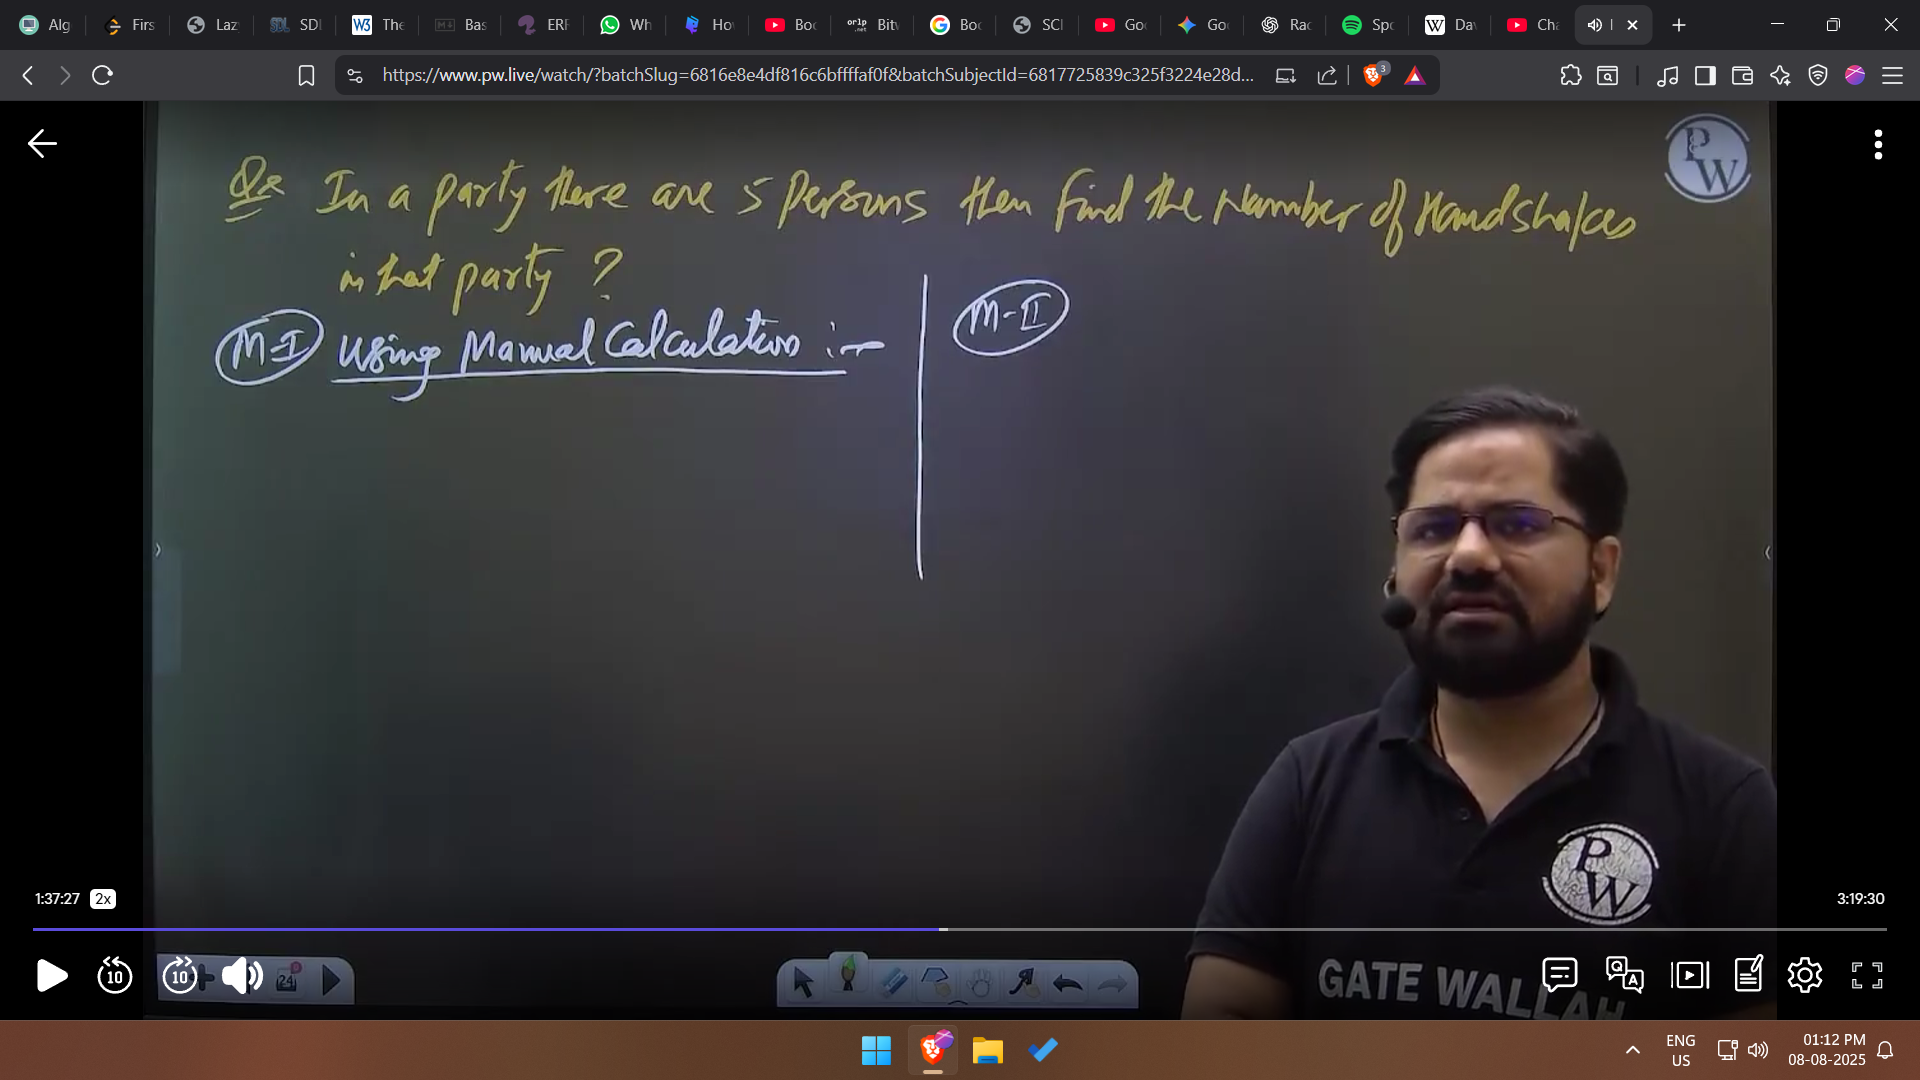 Alg
Firs
Laz
SDI
W3 The
Bas
ERF
Wh
Hov
Boo
orlp .net Bitv
Boo
SCI
Goo
Goo
Rac
Spo
W Dav
Cha
https://www.pw.live/watch/?batchSlug=6816e8e4df816c6bffffaf0f&batchSubjectId=6817725839c325f3224e28d...
3
PW
Q: In a party there are 5 Persons then find the Number of Handshakes
in that party ?
M-I Using Manual Calculation :-
M-II
PW
GATE WALLAH
1:37:27 2x
3:19:30
10
10
24
Q A
ENG
US
01:12 PM
08-08-2025